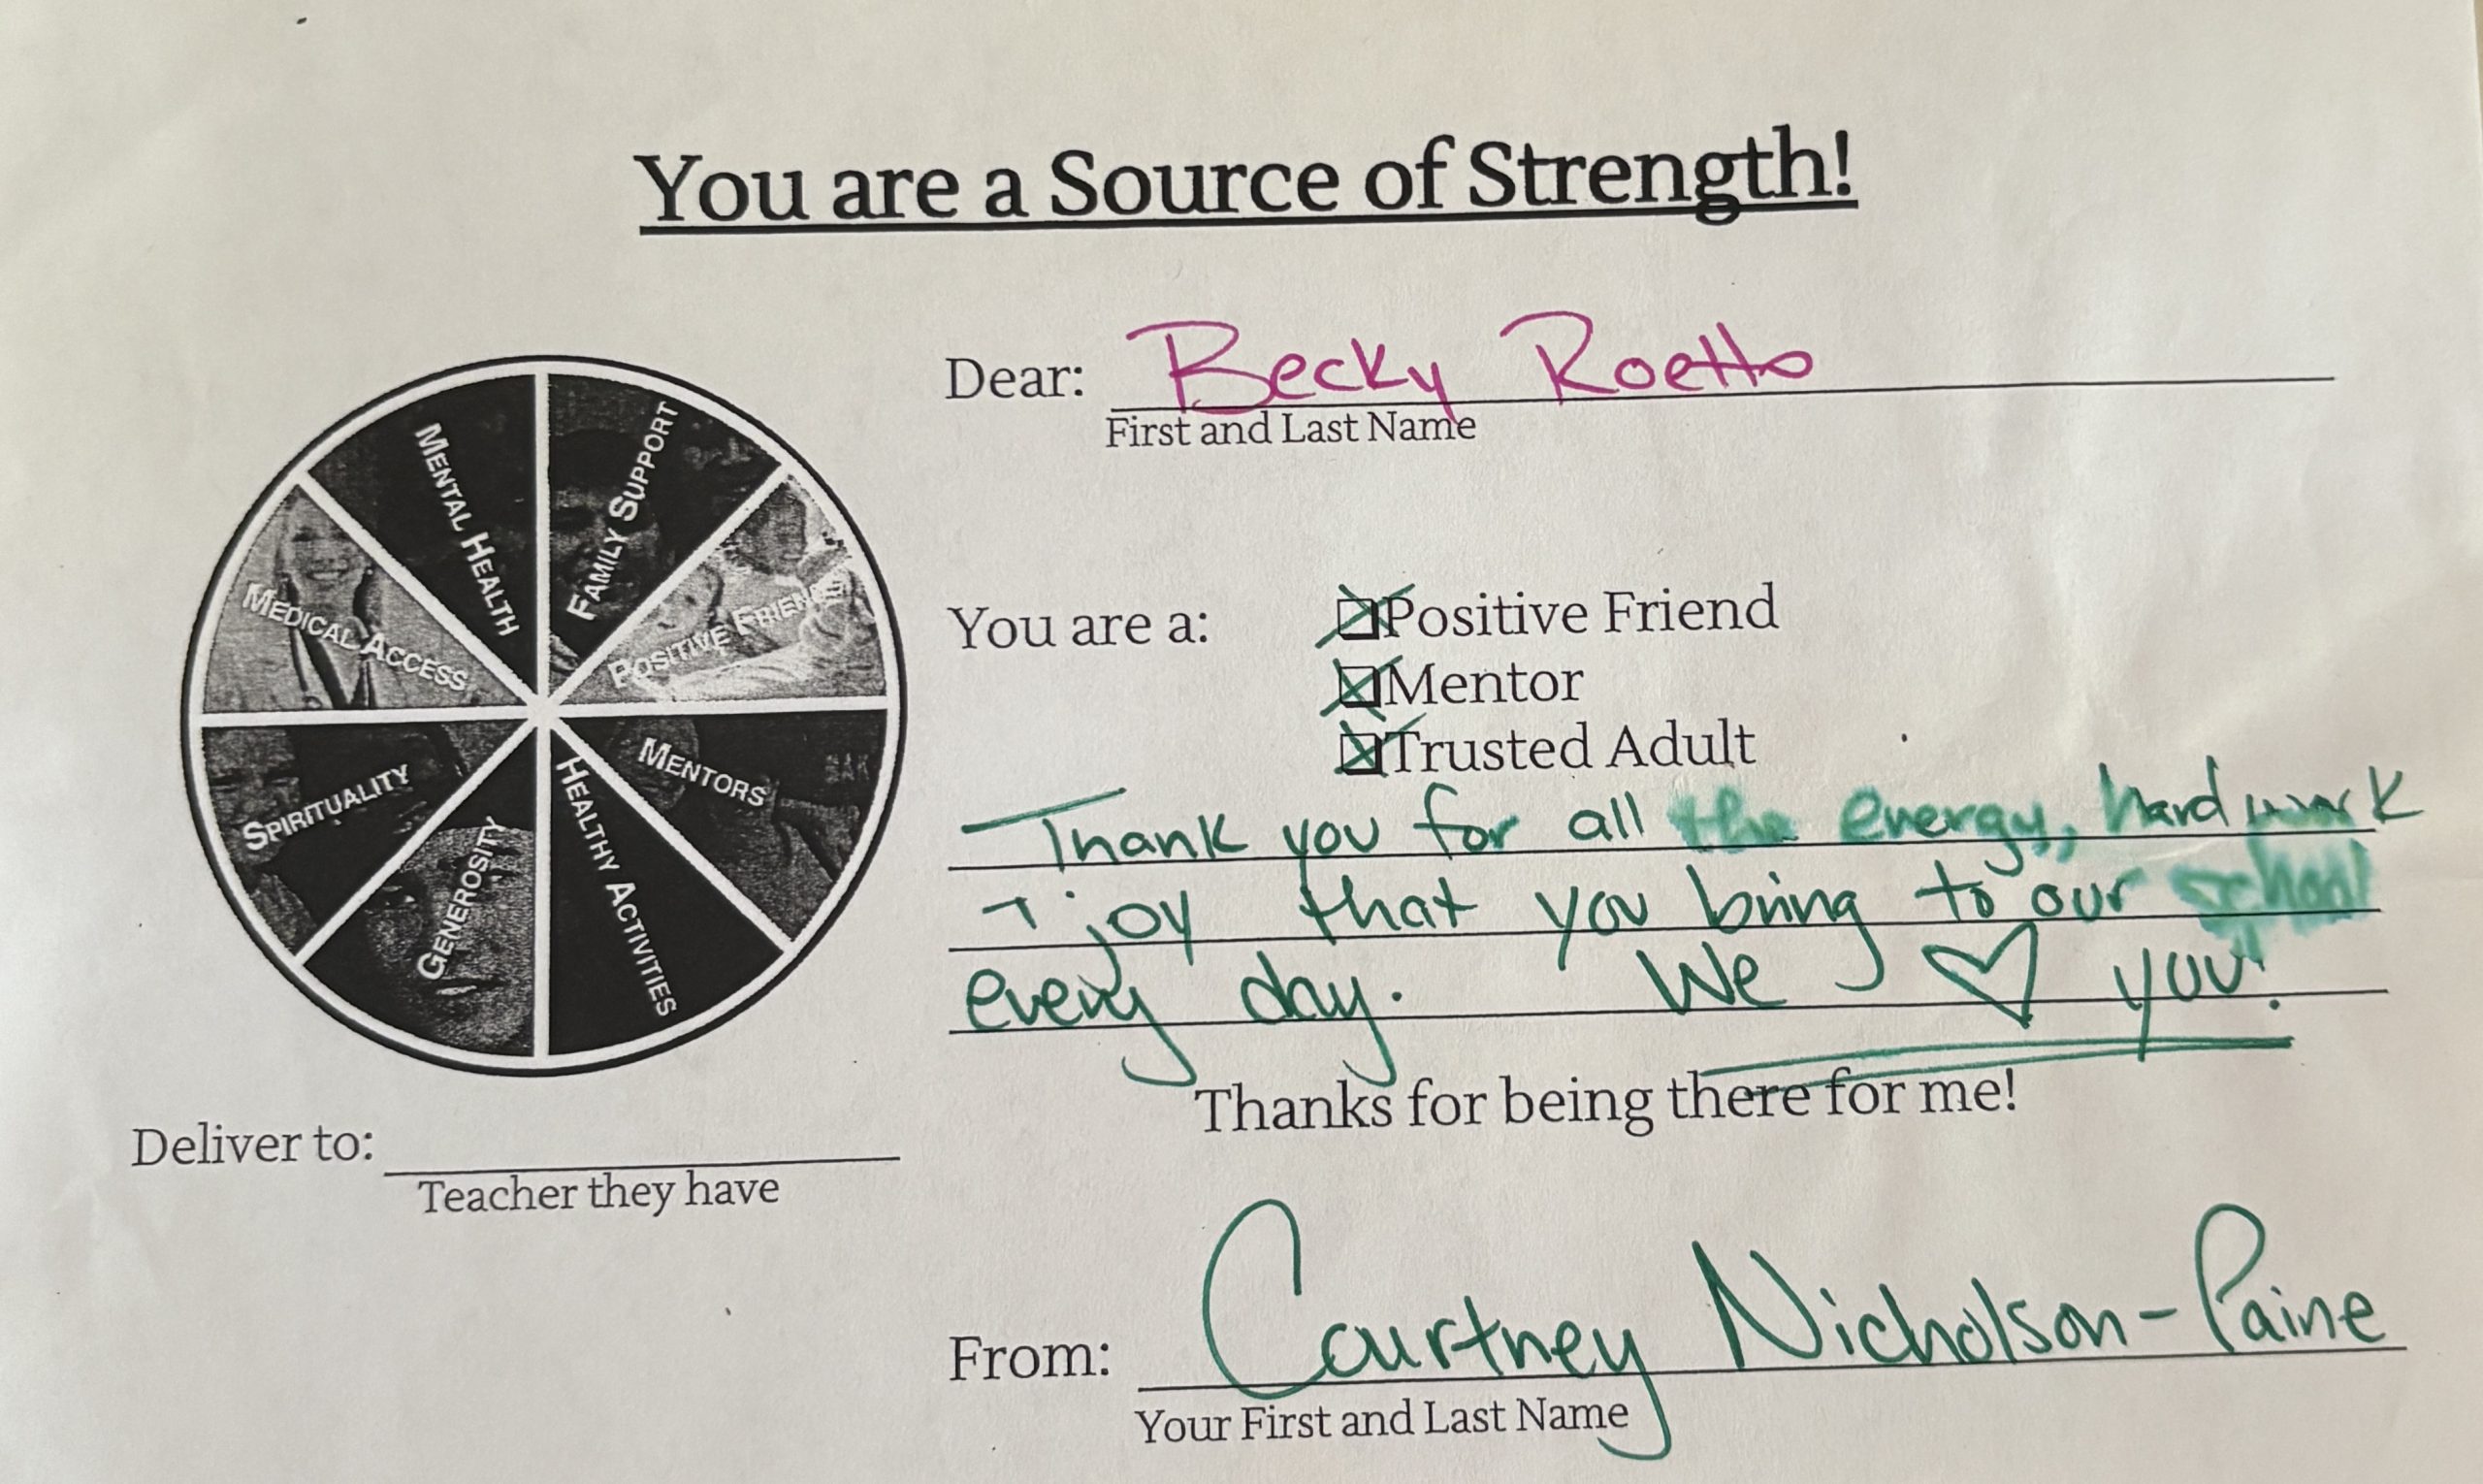 You are a Source of Strength!
Dear: Becky Roetto
First and Last Name
MENTAL HEALTH
FAMILY SUPPORT
POSITIVE FRIENDS
MENTORS
HEALTHY ACTIVITIES
GENEROSITY
SPIRITUALITY
MEDICAL ACCESS
You are a:
Positive Friend
Mentor
Trusted Adult
Thank you for all the energy, hard work
+ joy that you bring to our school
every day. We ♡ you!
Thanks for being there for me!
Deliver to:
Teacher they have
From: Courtney Nicholson-Paine
Your First and Last Name